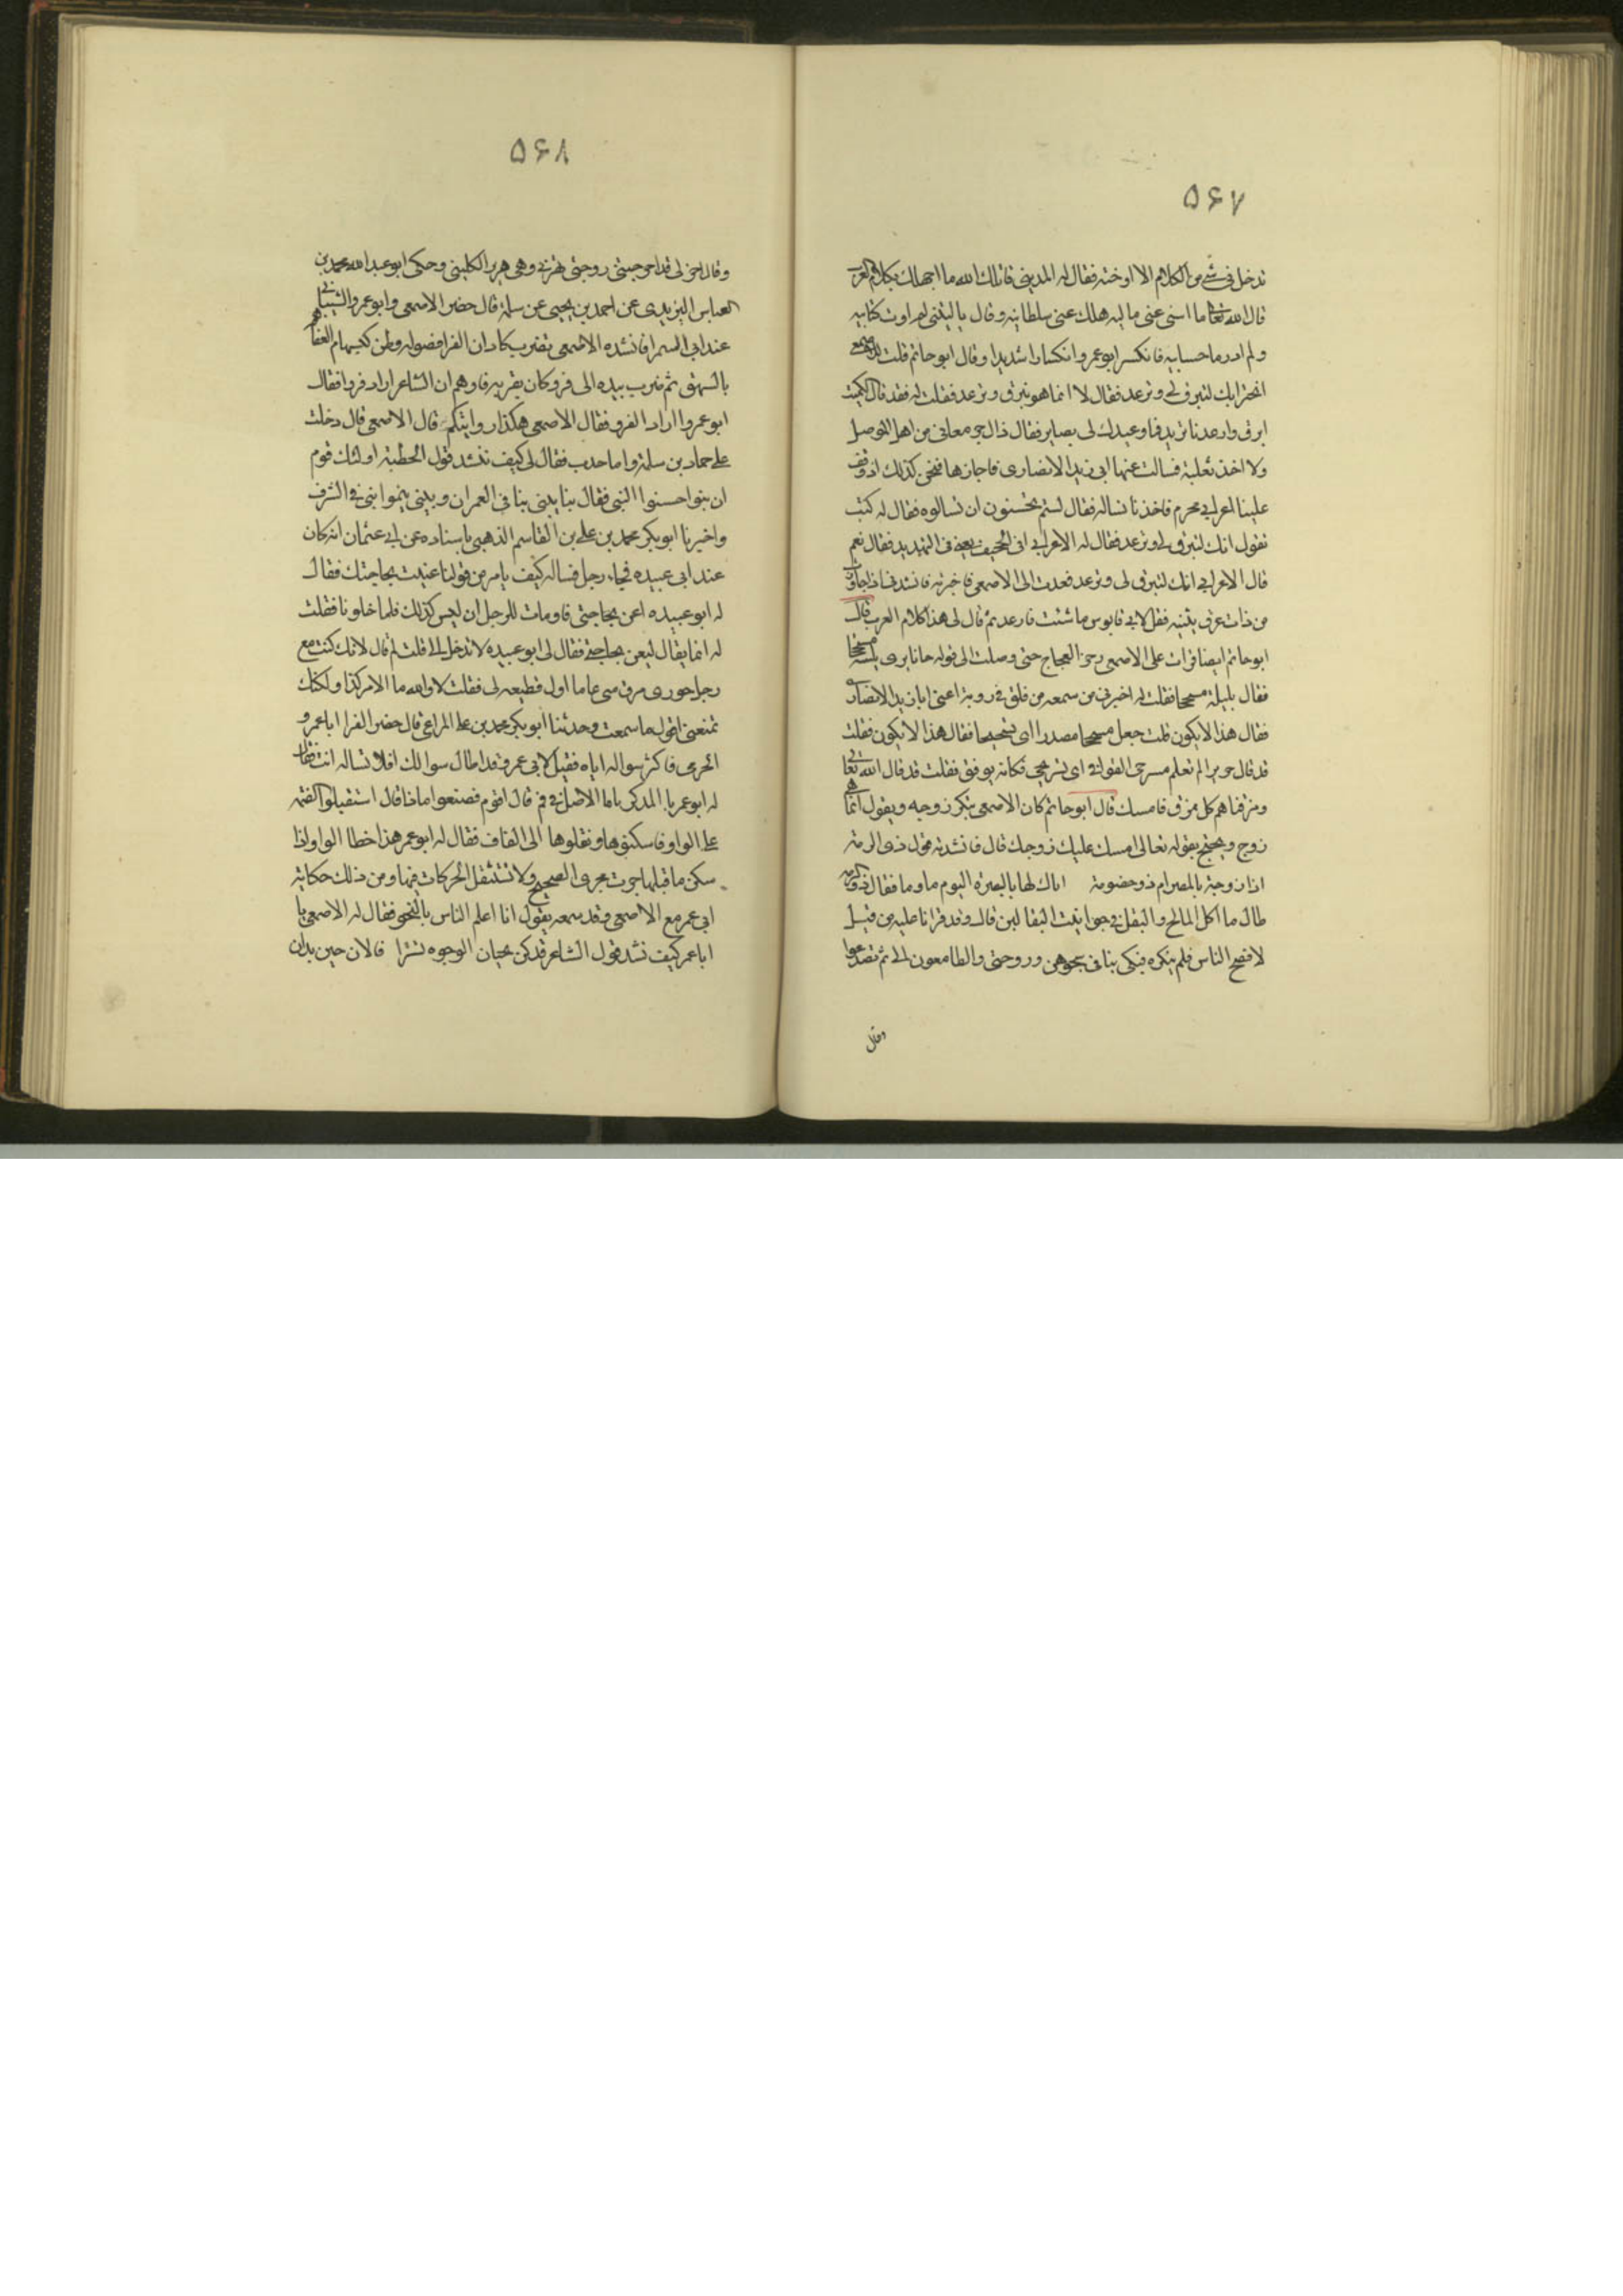 ۵۶۷
تدخل فی شیء من الکلام الا اوخته فقال له المدینی قاتلک الله ما اجهلک بکلام العرب
قال الله تعالی ما اغنی عنی مالیه هلک عنی سلطانیه وقال یا لیتنی لم اوت کتابیه
ولم ادر ما حسابیه فانکسر ابو عمرو انکسارا شدیدا وقال ابو حاتم قلت للاصمعی
اتجیز انک لتبرق لی وترعد فقال لا انما هو تبرق وترعد فقلت له فقد قال الکمیت
ابرق وارعد یا یزید فما وعیدک لی بضایر فقال ذاک جرمقانی من اهل الموصل
ولا اخذ بلغته فسالت عنها ابی زید الانصاری فاجازها فنحن کذلک اذ وقف
علینا اعرابی محرم فاخذنا نساله فقال لستم تحسنون ان تسالوه فقال له کیف
تقول انک لتبرق لی وترعد فقال له الاعرابی افی الجخیف یعنی فی التهدید فقال نعم
قال الاعرابی انک لتبرق لی وترعد فعدت الی الاصمعی فاخبرته فانشدنی اذا جاوزت
من ذات عرق ثنیه فقل لابی قابوس ما شئت فارعد ثم قال لی هذا کلام العرب قال
ابو حاتم ایضا قرات علی الاصمعی رجز العجاج حتی وصلت الی قوله جابا تری بلیته مسحجا
فقال بلیله مسحجا فقلت له اخبرنی من سمعه من فلق فی روبة اعنی ابا زید الانصاری
فقال هذا لا یکون قلت جعل مسحجا مصدرا ای تسحیجا فقال هذا لا یکون فقلت
قد قال جریر الم تعلم مسرحی القوافی ای تسریحی فکانه توقف فقلت قد قال الله تعالی
ومزقناهم کل ممزق فامسک قال ابو حاتم کان الاصمعی ینکر زوجه ویقول انما هی
زوج ویحتج بقوله تعالی امسک علیک زوجک قال فانشدته قول ذی الرمة
اذا زوجة بالمصر ام ذو خصومة اراک لها بالبصرة الیوم ثاویا فقال ذو الرمة
طال ما اکل المالح والبقل فی حوانیت البقالین قال وقد قرانا علیه من قبل
لافصح الناس فلم ینکره فبکی بناتی شجوهن وزوجتی والطامعون الی ثم تصدعوا
وقال
۵۶۸
وقال اخر لی قد اخرجتنی زوجتی تهر فی وهی هریر الکلبتی وحکی ابو عبد الله محمد بن
العباس الیزیدی عن احمد بن یحیی عن سلمة قال حضر الاصمعی وابو عمرو الشیبانی
عند ابی السمرا فانشده الاصمعی بضرب کاذان الفرا فضوله وطعن کتشهام العفا هم
بالنهق ثم ضرب بیده الی فرو کان بقربه فاوهم ان الشاعر اراد فروا فقال
ابو عمرو اراد الفرو فقال الاصمعی هکذا روایتکم قال الاصمعی قال دخلت
علی حماد بن سلمة وانا حدث فقال لی کیف تنشد قول الحطیئة اولئک قوم
ان بنوا احسنوا البنی فقال بنا یبنی بنا فی العمران وبنی ینموا بنی فی الشرف
واخبرنا ابو بکر محمد بن علی بن القاسم الذهبی باسناده عن ابی عثمان انه کان
عند ابی عبیده فجاء رجل فساله کیف یامر من قولنا عنیت بحاجتک فقال
له ابو عبیده اعن بحاجتی فاومات للرجل ان لیس کذلک فلما خلونا فقلت
له انما یقال لیعن بحاجتی فقال لی ابو عبیده لا تدخل الی قلت لم قال لانک کنت مع
رجل خوری سرق منی عاما اول قطیفه لی فقلت لا والله ما الامر کذا ولکنک
تمنعنی اقول ما سمعت وحدثنا ابو بکر محمد بن علی المراغی قال حضر الفرا ابا عمرو
الجرمی فاکثر سواله ایاه فقیل لابی عمرو قد اطال سوالک افلا تساله انت فقال
له ابو عمر یا ابا زکریا ما الاصل فی قم قال اقوم فصنعوا ماذا قال استثقلوا الضمه
علی الواو فاسکنوها ونقلوها الی القاف فقال له ابو عمر هذا خطا الواو اذا
سکن ما قبلها جرت مجری الصحیح ولا تستثقل الحرکات فیها ومن ذلک حکایة
ابی عمر مع الاصمعی وقد سمعه یقول انا اعلم الناس بالنحو فقال له الاصمعی یا
ابا عمر کیف تنشد قول الشاعر قد کن یخبان الوجوه تسترا فالان حین بدان